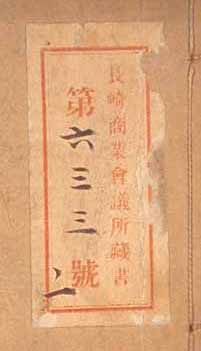 長崎商業會議所藏書
第六三三號
二